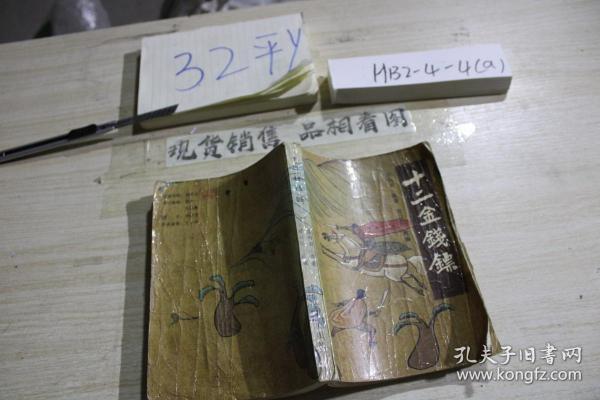 32平y
HB2-4-4(a)
现货销售 品相看图
十二金錢鏢
孔夫子旧书网
www.kongfz.com